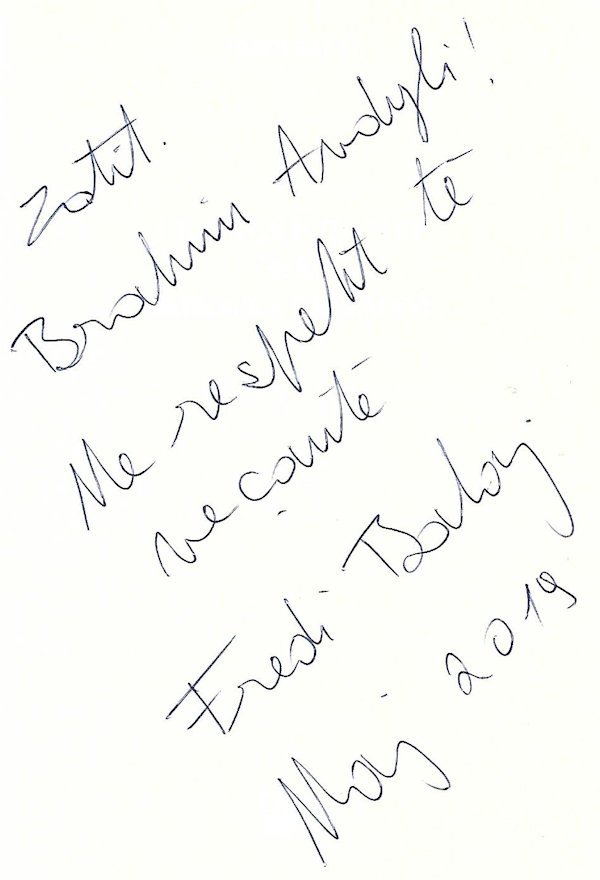 Zotit.
Brahim Avdyli!
Me respekt të
veçantë
Fredi Baloj
Maj 2019